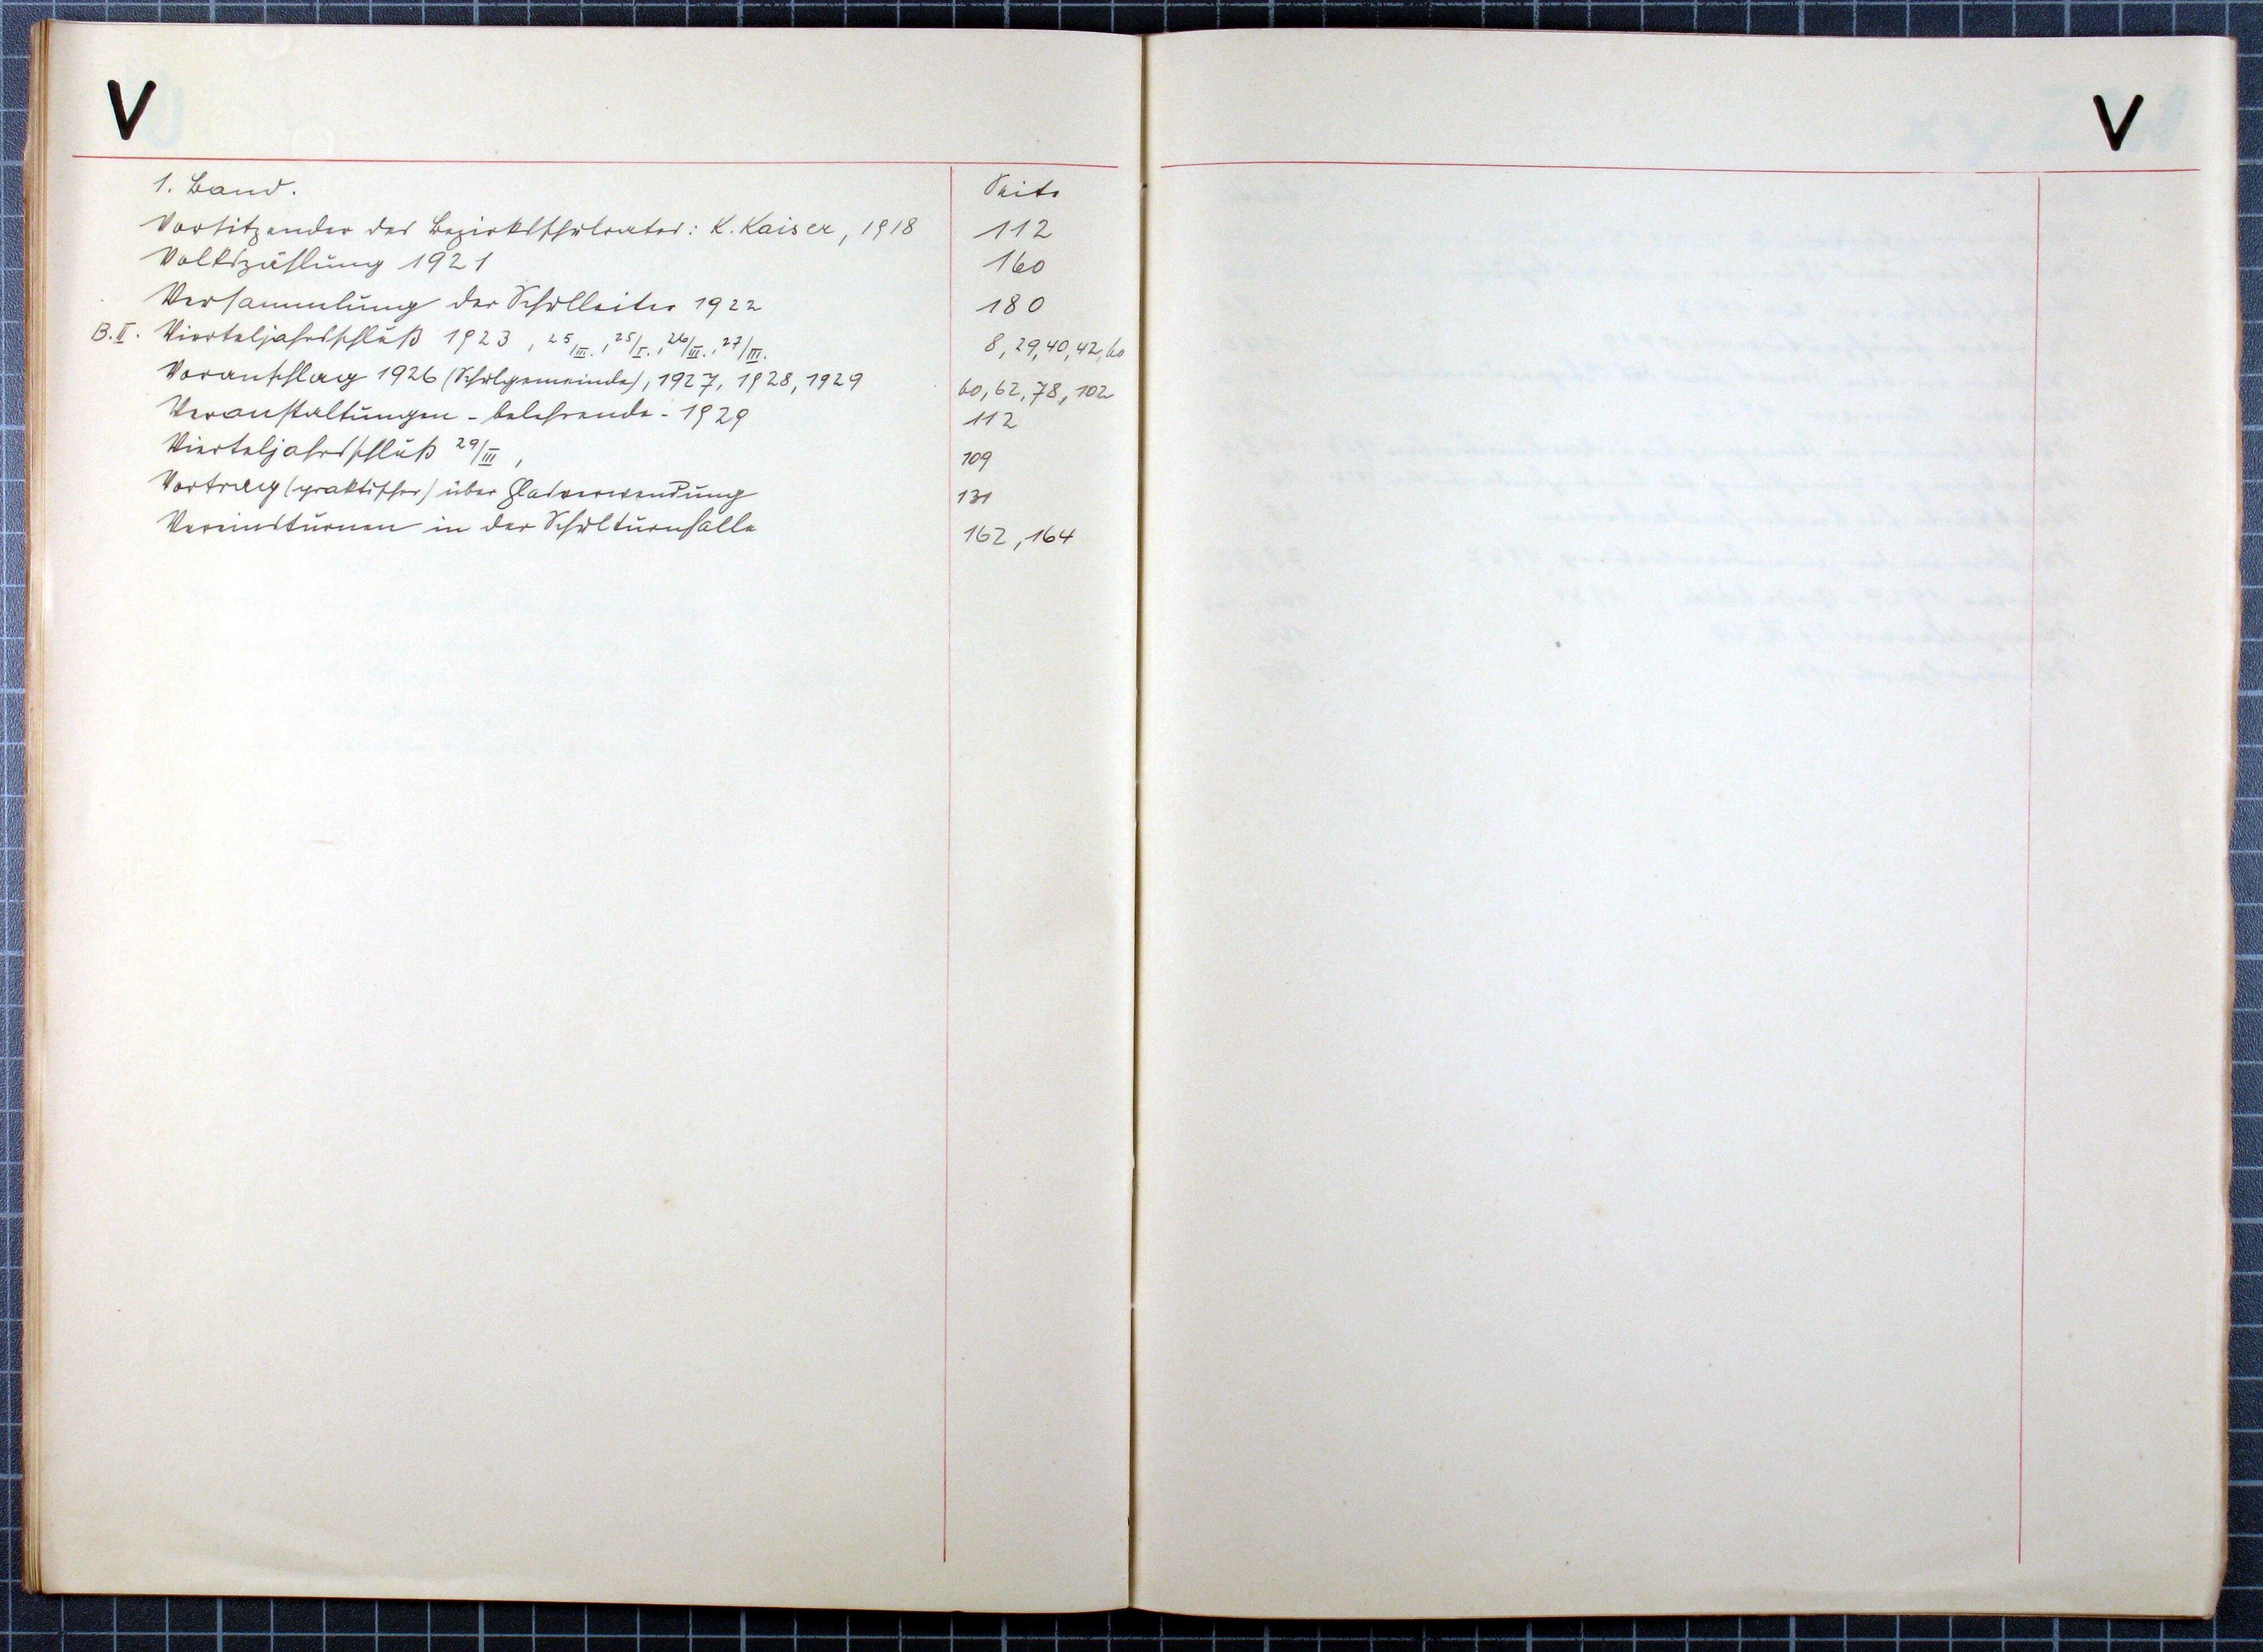 V
V
1. Band. Seite
Vorsitzender des Bezirksschulrates: K. Kaiser, 1918 112
Volkszählung 1921 160
Versammlung der Schulleiter 1922 180
B. II. Vierteljahrsschluß 1923, 25/III., 25/I., 26/III., 27/III. 8, 29, 40, 42, 60
Voranschlag 1926 (Schulgemeinde), 1927, 1928, 1929 60, 62, 78, 102
Veranstaltungen - belehrende - 1929 112
Vierteljahrsschluß 29/III, 109
Vortrag (praktischer) über Glasverwendung 131
Vereinsturnen in der Schulturnhalle 162, 164